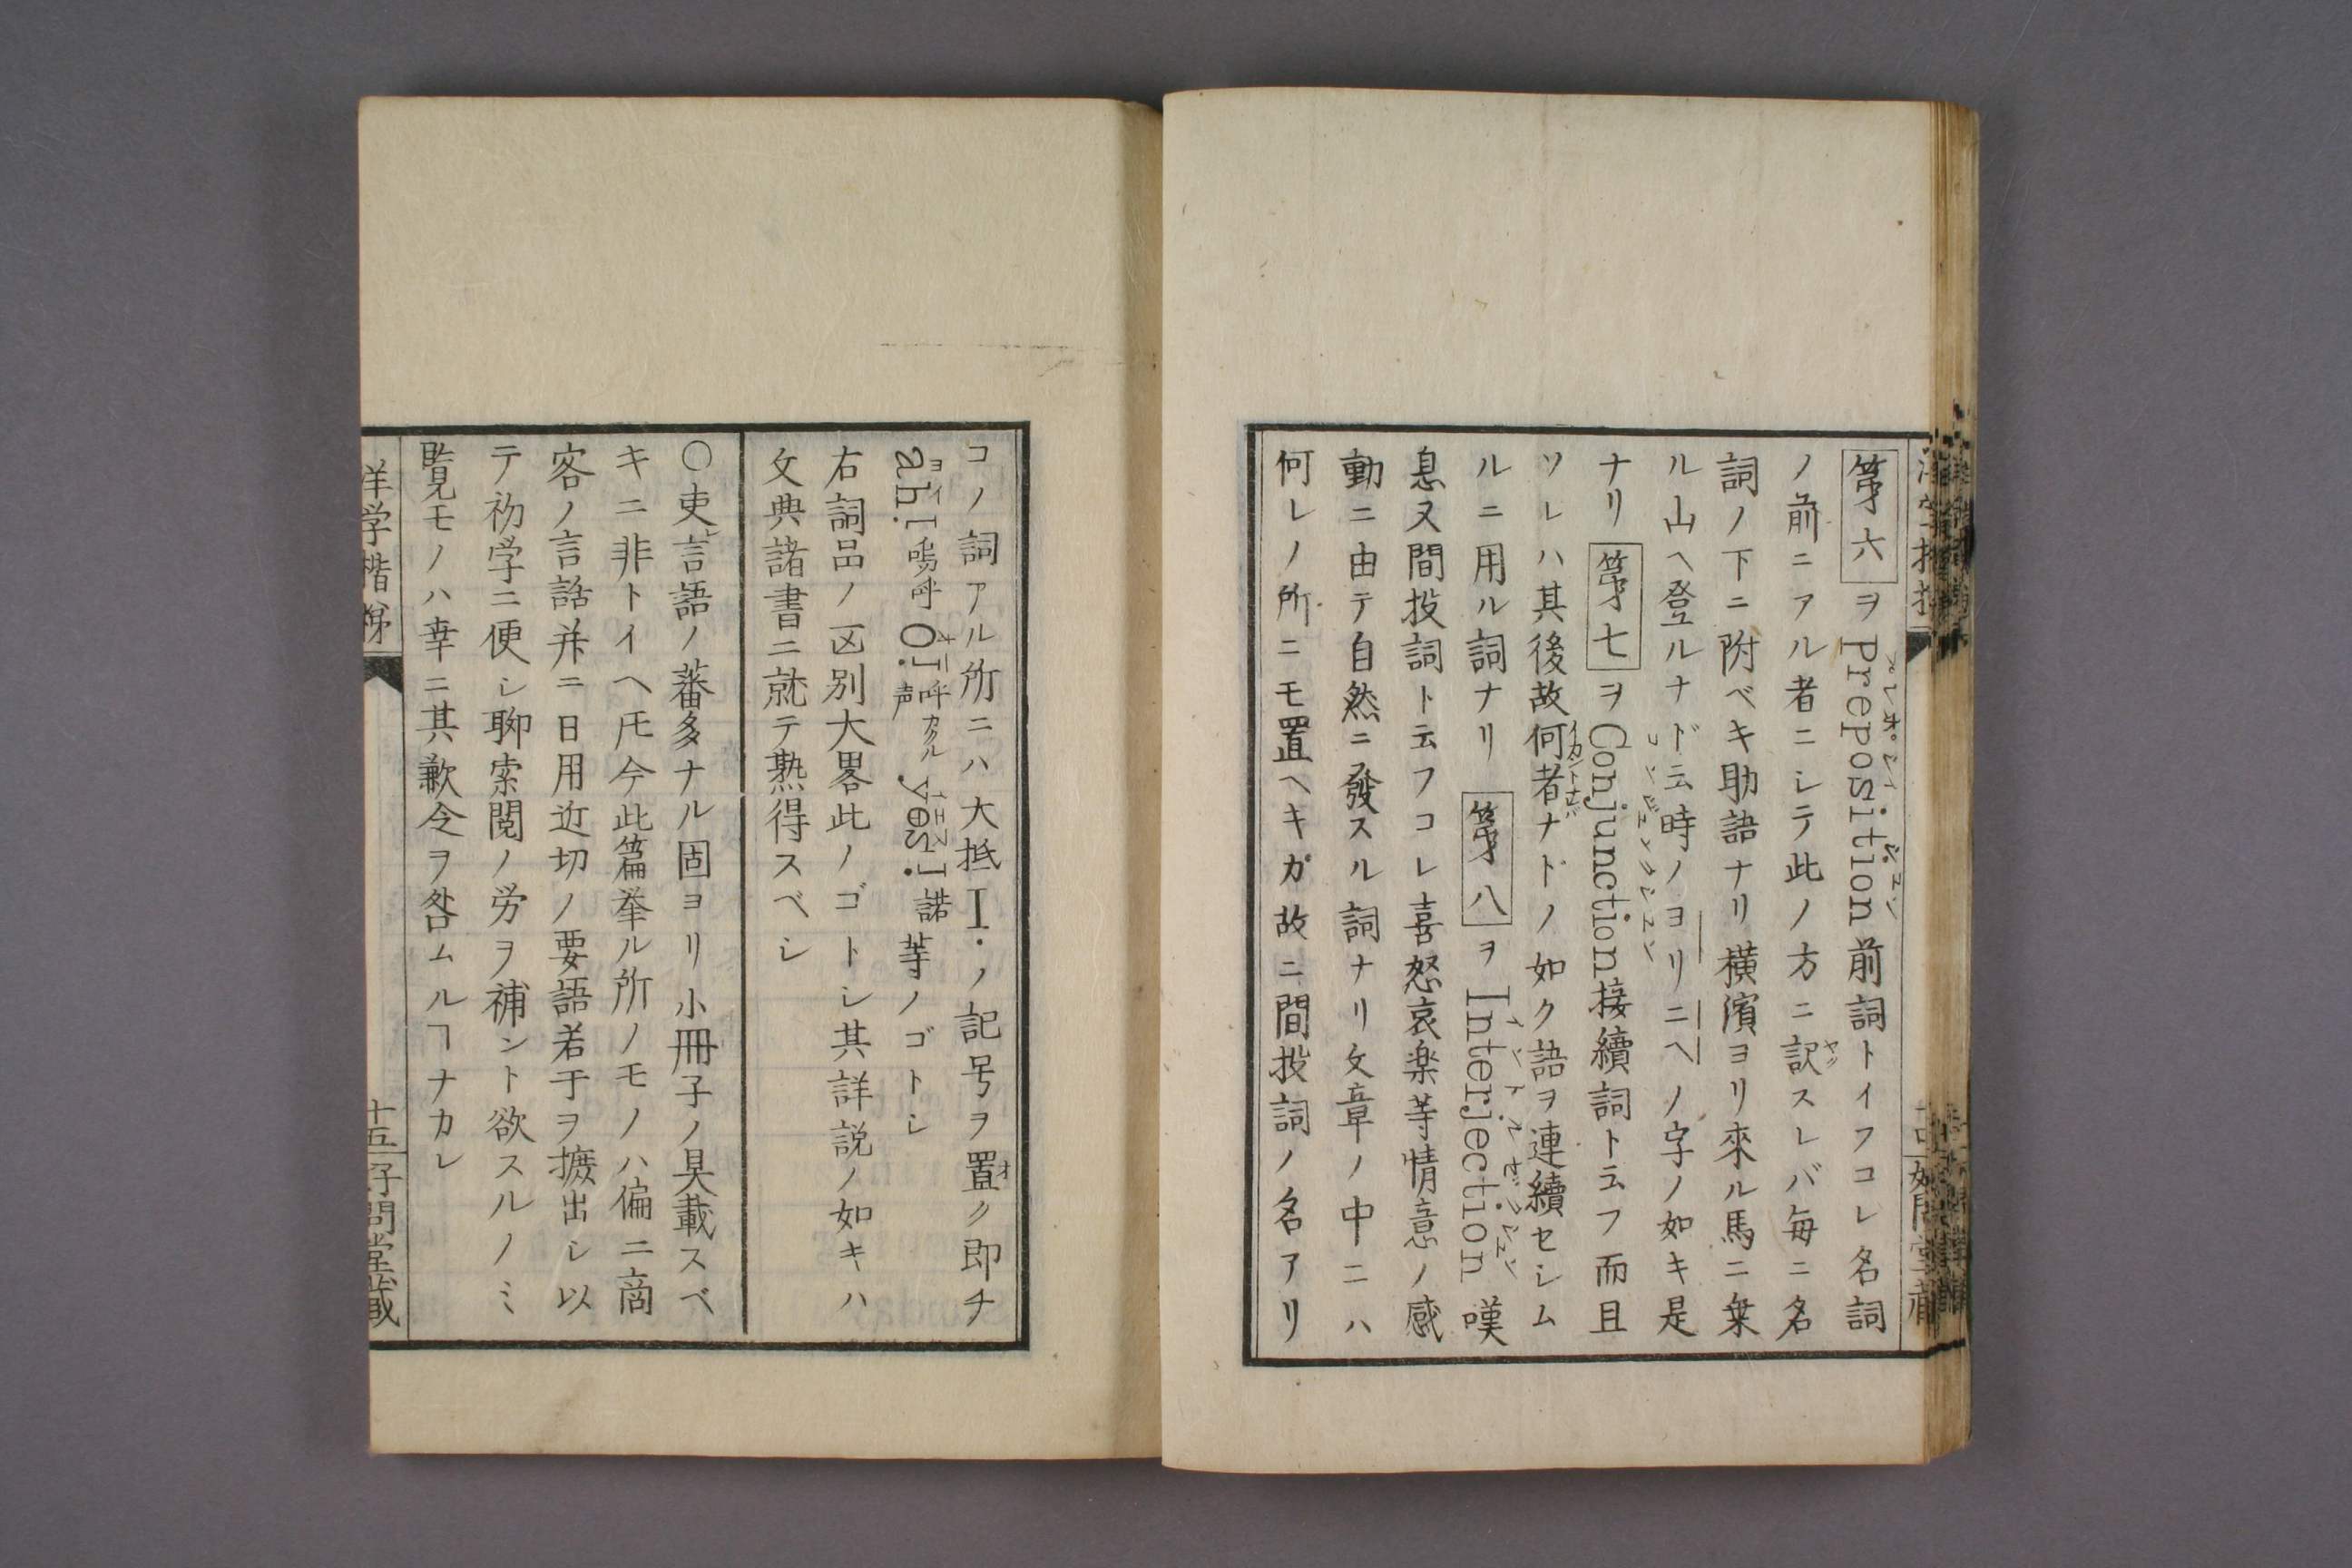 第六ヲPreposition前詞トイフコレ名詞
ノ前ニアル者ニシテ此ノ方ニ訳スレバ毎ニ名
詞ノ下ニ附ベキ助語ナリ横濱ヨリ來ル馬ニ乗
ル山ヘ登ルナド云時ノヨリニヘノ字ノ如キ是
ナリ第七ヲConjunction接續詞ト云フ而且
ソレハ其後故何者ナドノ如ク語ヲ連續セシム
ルニ用ル詞ナリ第八ヲInterjection嘆
息又間投詞ト云フコレ喜怒哀楽等情意ノ感
動ニ由テ自然ニ發スル詞ナリ文章ノ中ニハ
何レノ所ニモ置ヘキガ故ニ間投詞ノ名アリ
コノ詞アル所ニハ大抵I.ノ記号ヲ置ク即チ
ah.I嗚呼O.I呼カクル声yes.I諾等ノゴトシ
右詞品ノ区別大畧此ノゴトシ其詳説ノ如キハ
文典諸書ニ就テ熟得スベシ
〇吏言語ノ蕃多ナル固ヨリ小冊子ノ具載スベ
キニ非トイヘ𪜈今此篇挙ル所ノモノハ偏ニ商
客ノ言話并ニ日用近切ノ要語若干ヲ摭出シ以
テ初学ニ便シ聊索閲ノ労ヲ補ント欲スルノミ
覧モノハ幸ニ其歉令ヲ咎ムルヿナカレ
洋学楷梯
十五
好問堂蔵